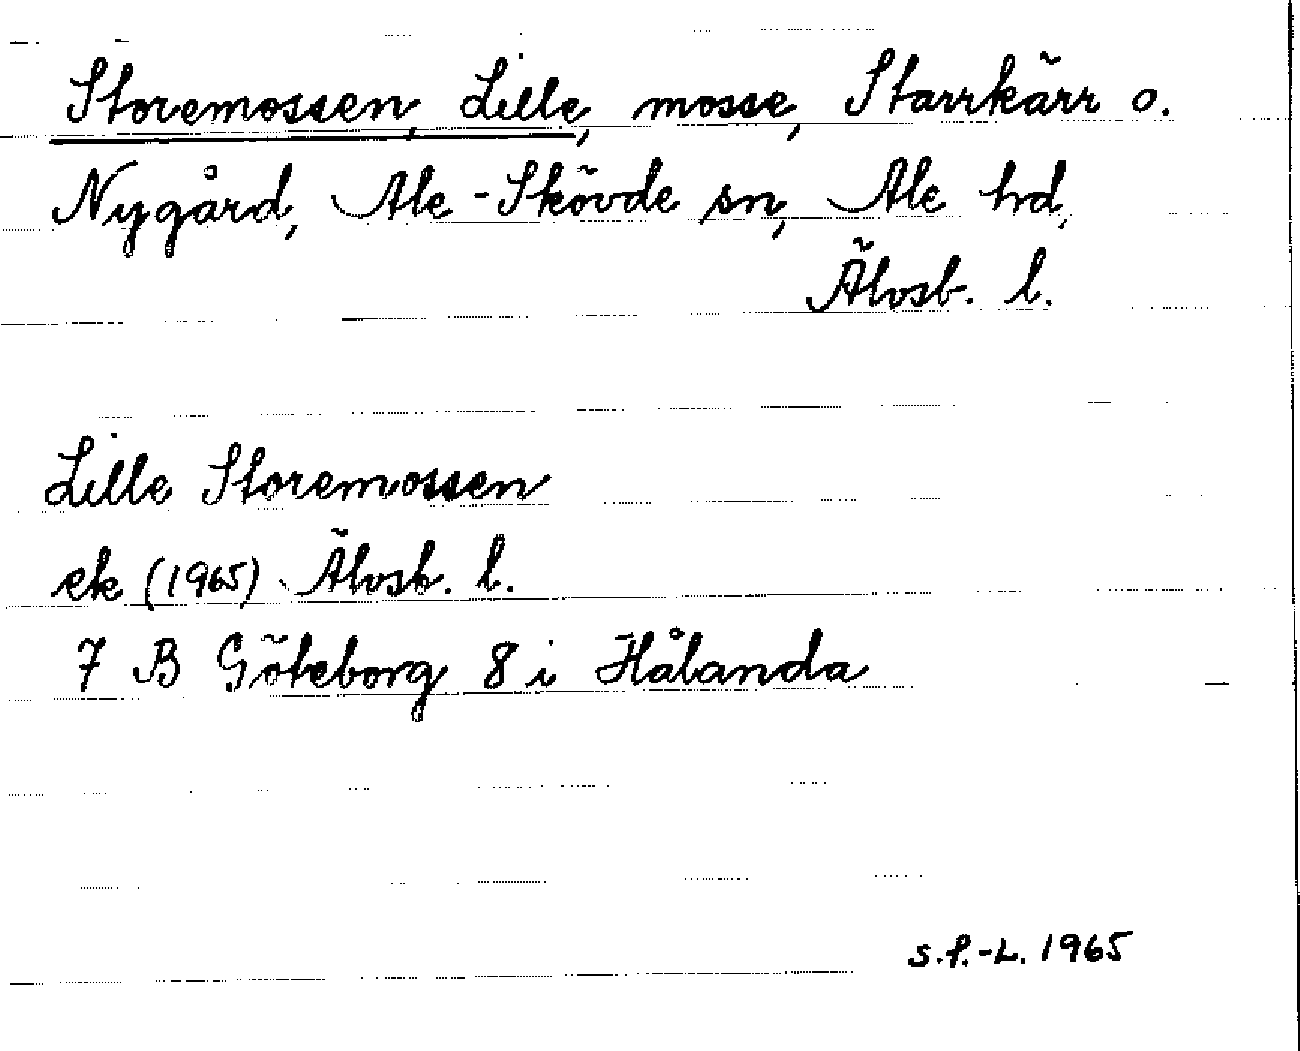 Storemossen, Lille, mosse, Starrkärr o.
Nygård, Ale-Skövde sn, Ale hd,
Älvsb. l.
Lille Storemossen
ek (1965) Älvsb. l.
7 B Göteborg 8 i Hålanda
S.P.-L. 1965